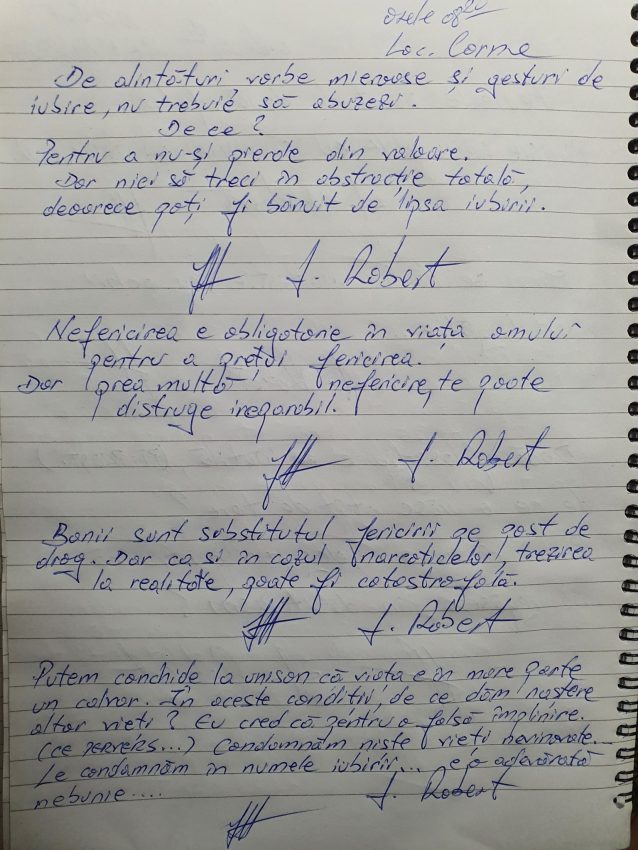 Orele 08²⁰
Loc. Corme
De alintături, vorbe mieroase și gesturi de
iubire, nu trebuie să abuzezi.
De ce?
Pentru a nu-și pierde din valoare.
Dar nici să treci în abstracție totală,
deoarece poți fi bănuit de lipsa iubirii.
J. Robert
Nefericirea e obligatorie în viața omului
pentru a prețui fericirea.
Dar prea multă nefericire, te poate
distruge ireparabil.
J. Robert
Banii sunt substitutul fericirii pe post de
drog. Dar ca și în cazul narcoticelor, trezirea
la realitate, poate fi catastrofală.
J. Robert
Putem conchide la unison că viața e în mare parte
un calvar. În aceste condiții, de ce dăm naștere
altor vieți? Eu cred că pentru o falsă împlinire.
(ce PERVERS...) Condamnăm niște vieți nevinovate...
Le condamnăm în numele iubirii.... e o adevărată
nebunie....
J. Robert